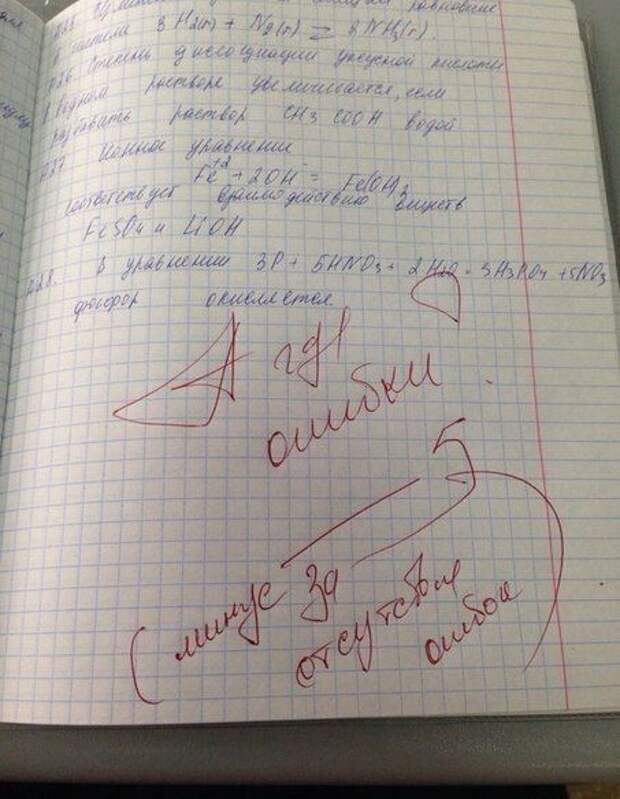 равновесие
в системе 3H₂(г) + N₂(г) ⇄ 2NH₃(г).
А26 Степень диссоциации уксусной кислоты
в водном растворе увеличивается, если
разбавить раствор CH₃COOH водой
А27 Ионное уравнение
Fe⁺² + 2OH⁻ = Fe(OH)₂
соответствует взаимодействию веществ
FeSO₄ и LiOH
А28. В уравнении 3P + 5HNO₃ + 2H₂O = 3H₃PO₄ + 5NO₃
фосфор окисляется.
А где
ошибки
5-
(минус за
отсутствие
ошибок)